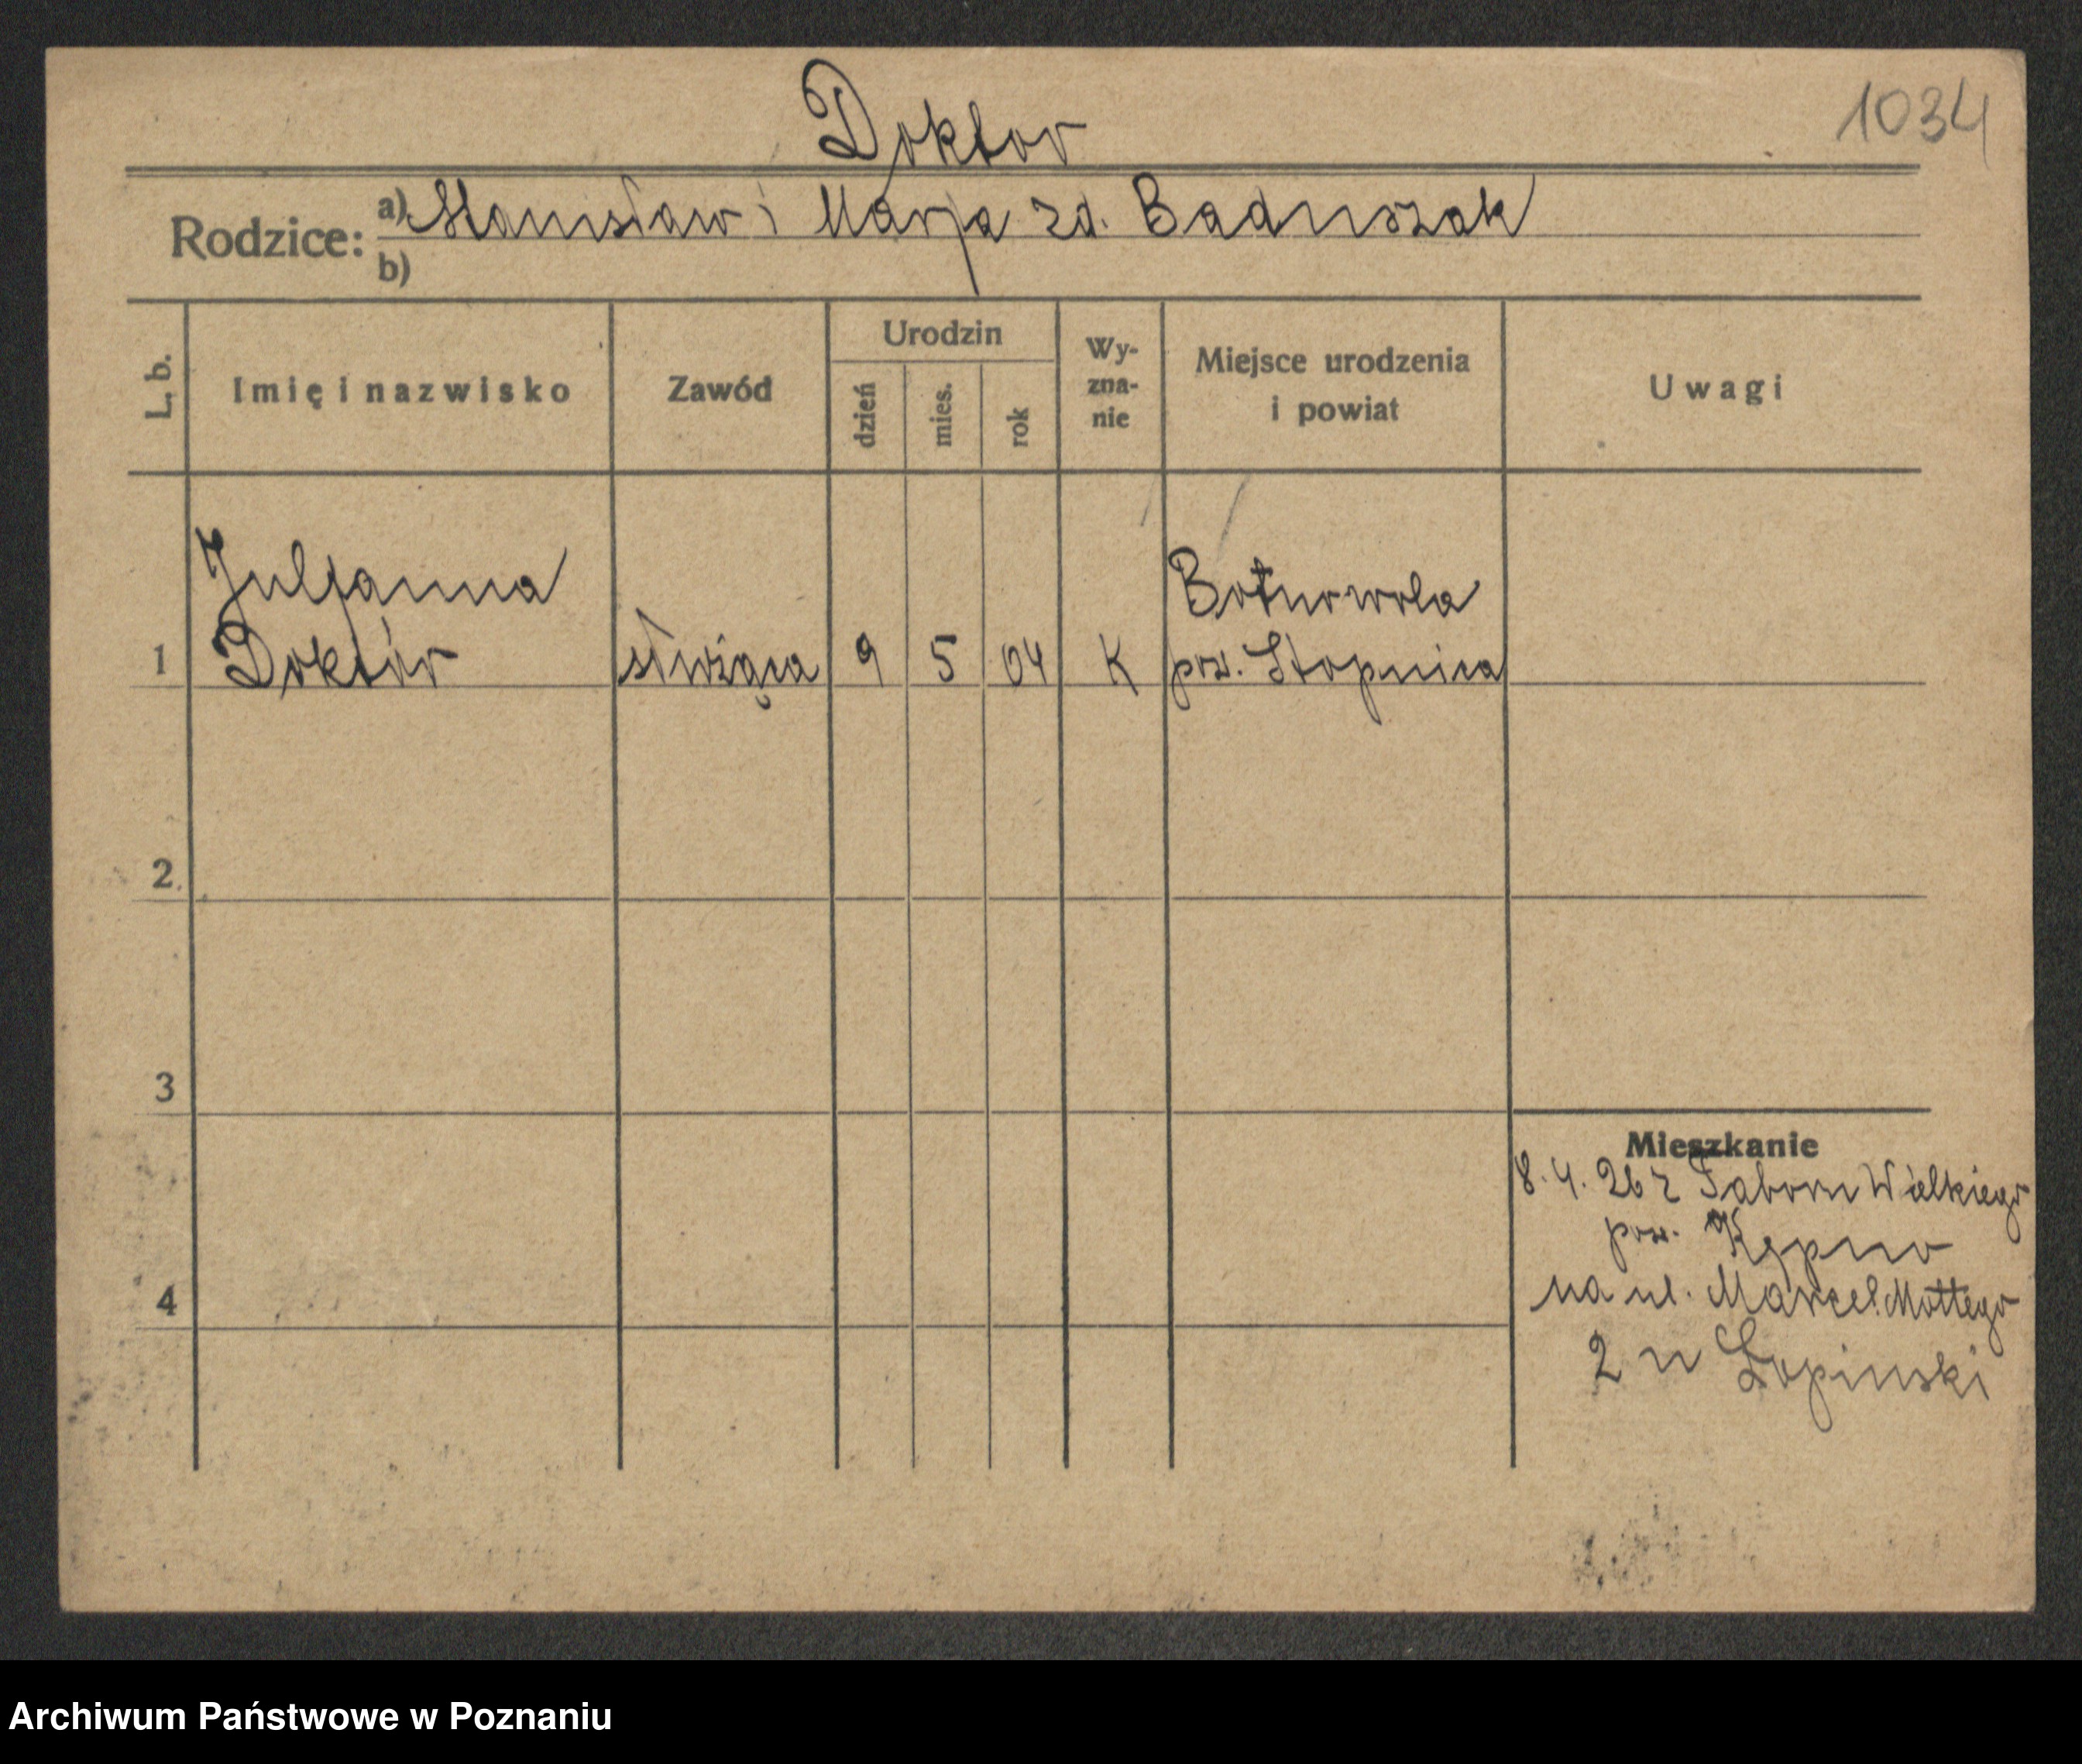 Doktor
1034
Rodzice: a) Stanisław i Marja zd. Baduszak
b)
L. b. Imię i nazwisko Zawód Urodzin dzień mies. rok Wy-zna-nie Miejsce urodzenia i powiat Uwagi
Juljanna Boturowola
1 Doktór służąca 9 5 04 K pow. Stopnica
2
3
Mieszkanie
8.4.26 z Taboru Wielkiego
pow. Kępno
4 na ul. Marcel. Mottego
2 u Łopinski
Archiwum Państwowe w Poznaniu